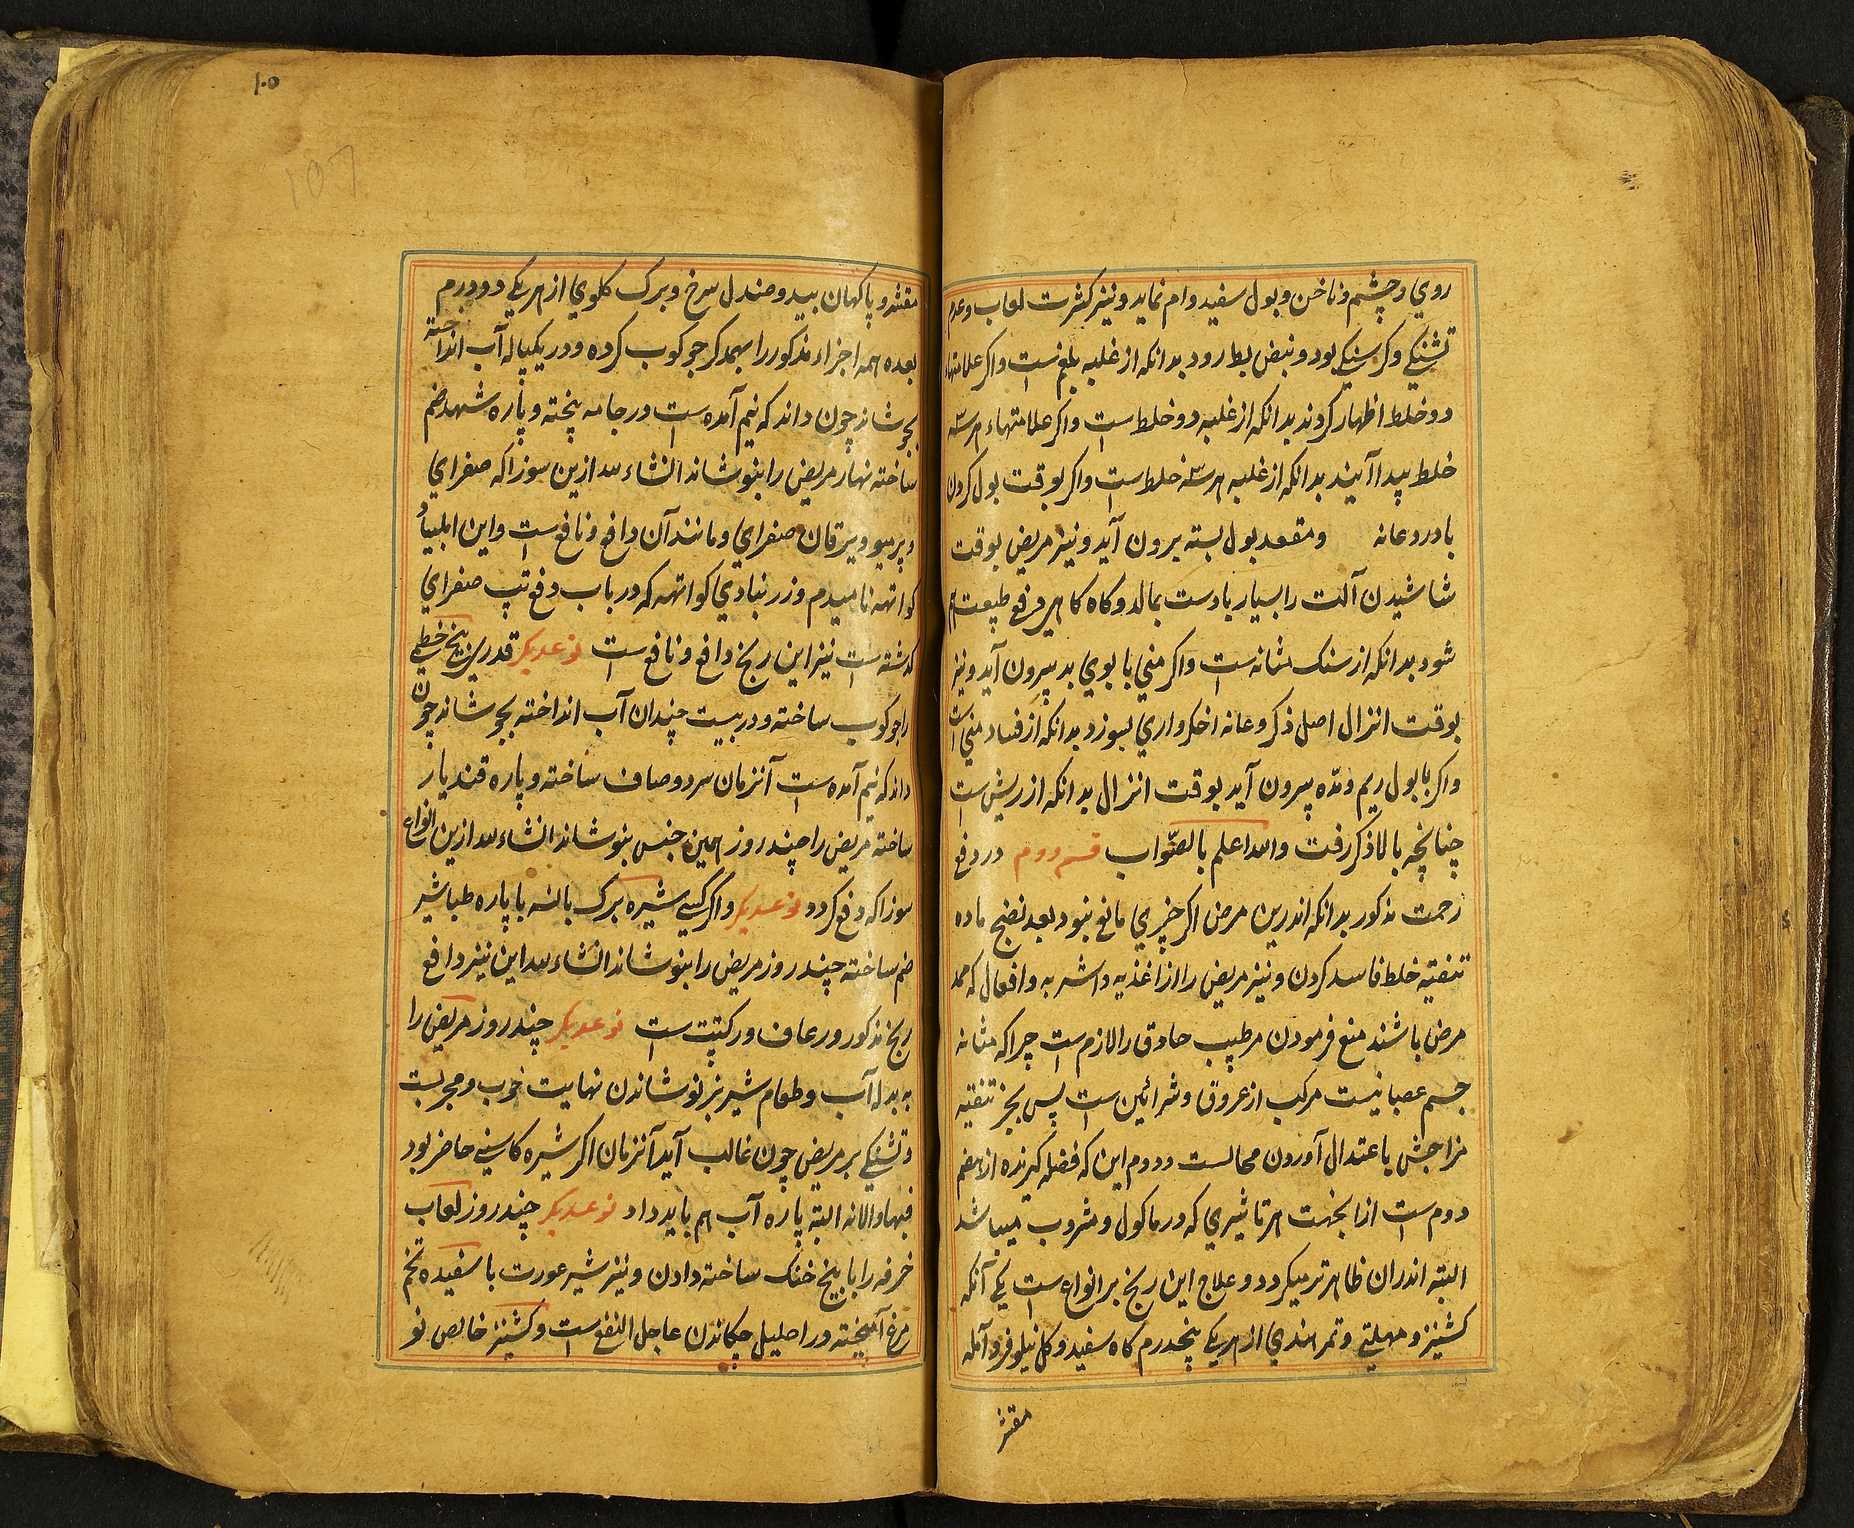 روي و چشم و ناخن و بول سفيد وام نمايد و نيز كثرت لعاب و عدم
تشنكي و كرسنكي بود و نبض بطا رود بدانكه از غلبه بلغم است و اكر علامتهاء
دو خلط اظهار كردند بدانكه از غلبه دو خلط است و اكر علامتهاء هر سه
خلط پيدا آيند بدانكه از غلبه هر سه خلط است و اكر بوقت بول كردن
با درد عانه و مقعد بول بسته بيرون آيد و نيز مريض بوقت
شاشيدن آلت را بسيار با دست بمالد و كاه كاهي
شود بدانكه از سنك مثانه است و اكر مني با بوي بد بيرون آيد و نيز
بوقت انزال اصل ذكر و عانه اخكر واري بسوزد بدانكه از فساد مني است
و اكر با بول ريم و مده بيرون آيد بوقت انزال بدانكه از ريش است
چنانچه بالا ذكر رفت والله اعلم بالصواب قسم دوم در دفع
زحمت مذكور بدانكه اندرين مرض اكر چيزي مانع نبود بعد نضج ماده
تنقيه خلط فاسد كردن و نيز مريض را از اغذيه و اشربه و افعال كه ممد
مرض باشند منع فرمودن مر طبيب حاذق را لازم است چراكه مثانه
جسم عصبانيست مركب از عروق و شرائين است پس بجز تنقيه
مزاجش باعتدال آوردن محالست و دوم اين كه فضله كيرنده از هضم
دوم است ازانجهت هر تاثيري كه در ماكول و مشروب ميباشد
البته اندران ظاهرتر ميكردد و علاج اين رنج بر انواع است يكي آنكه
كشنيز و مهليتي و تمر هندي از هر يكي پنجدرم كاه سفيد و كل نيلوفر و آمله
مقشر
۱۰۵
107
مقشر و پاكهان بيد و صندل سرخ و برك كلوي از هر يكي دو درم
بعده همه اجزاء مذكور را بهمدكر جوكوب كرده و در يكپياله آب انداخته
بجوشاند چون داند كه نيم آمده است در جامه پخته و پاره شهد ضم
ساخته نهار مريض را بنوشاند انشاء الله ازين سوزاكه صفراي
و پرميو و يرقان صفراي و مانند آن دافع و نافع است و اين
كواتهه ناميدم و زر نبادي كواتهه كه در باب دفع تپ صفراي
كذشته است نيز اين رنج دافع و نافع است نوعديكر قدري بيخ خطمي
را جوكوب ساخته و در بيست چندان آب انداخته بجوشاند چون
داند كه نيم آمده است آنزمان سرد و صاف ساخته و پاره قند يار
ساخته مريض را چند روز همين جنس بنوشاند انشاء الله ازين انواع
سوزاكه دفع كردد نوعديكر و اكر كسي شيره برك بانسه با پاره طباشير
ضم ساخته چند روز مريض را بنوشاند انشاء الله اين نيز دافع
رنج مذكور و رعاف و ركتپت است نوعديكر چند روز مريض را
به بدل آب و طعام شير بز نوشاندن نهايت خوب و مجربست
و تشنكي بر مريض چون غالب آيد آنزمان اكر شيره كاسني حاضر بود
فبها والا نه البته پاره آب هم بايد داد نوعديكر چند روز لعاب
خرفه را با بيخ خنك ساخته دادن و نيز شير عورت با سفيده تخم
مرغ آميخته در احليل چكاندن عاجل النفع است و كشنيز خالص نو